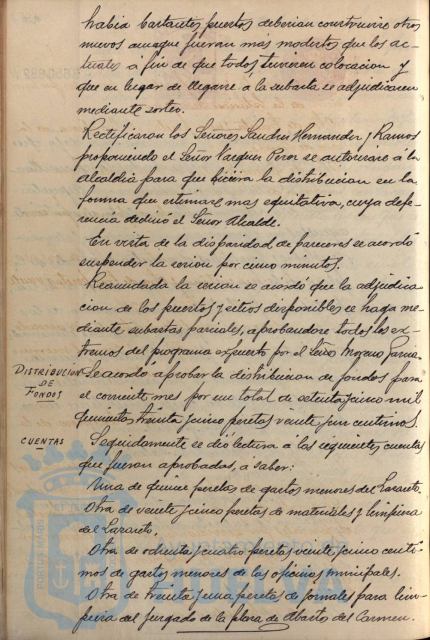 había bastantes puestos deberían construirse otros
nuevos aunque fueran más modestos que los ac-
tuales a fin de que todos tuvieren colocación y
que en lugar de llegarse a la subasta se adjudicaren
mediante sorteo.
Rectificaron los Señores Sanchez Hernandez y Ramos
proponiendo el Señor Vazquez Perez se autorizare a la
alcaldía para que hiciera la distribución en la
forma que estimare mas equitativa, cuya defe-
rencia declinó el Señor Alcalde.
En vista de la disparidad de pareceres se acordó
suspender la sesion por cinco minutos.
Reanudada la sesion se acordó que la adjudica-
cion de los puestos y sitios disponibles se haga me-
diante subastas parciales, aprobandose todos los ex-
tremos del programa expuesto por el Señor Moreno
DISTRIBUCION
DE
FONDOS
Se acordo aprobar la distribucion de fondos para
el corriente mes por un total de setenta y cinco mil
quinientas treinta y cinco pesetas veinte y un centimos.
CUENTAS
Seguidamente se dio lectura a las siguientes cuentas
que fueron aprobadas, a saber:
Una de quince pesetas de gastos menores del Lazareto.
Otra de veinte y cinco pesetas de materiales y limpieza
del Lazareto.
Otra de ochenta y cuatro pesetas veinte y cinco centi-
mos de gastos menores de las oficinas municipales.
Otra de treinta y una pesetas de jornales para lim-
pieza del Juzgado de la plaza de Abastos del Carmen.